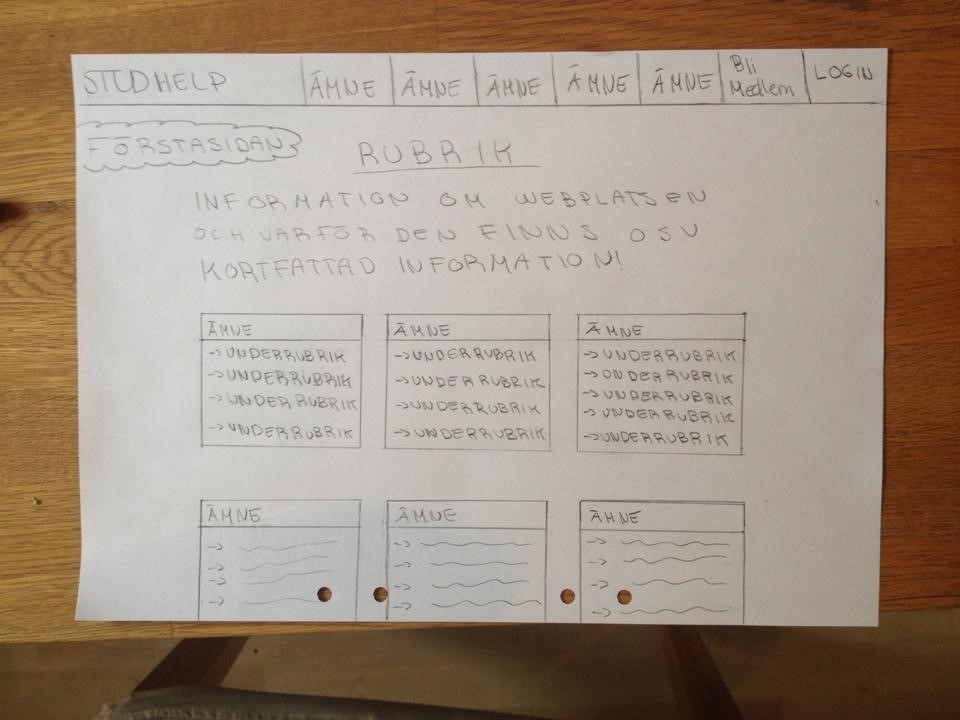 STUDHELP ÄMNE ÄMNE ÄMNE ÄMNE ÄMNE Bli Medlem LOGIN
FÖRSTASIDAN
RUBRIK
INFORMATION OM WEBPLATSEN
OCH VARFÖR DEN FINNS OSV
KORTFATTAD INFORMATION!
ÄMNE
->UNDERRUBRIK
->UNDERRUBRIK
->UNDERRUBRIK
->UNDERRUBRIK
ÄMNE
->UNDERRUBRIK
->UNDERRUBRIK
->UNDERRUBRIK
->UNDERRUBRIK
ÄMNE
->UNDERRUBRIK
->UNDERRUBRIK
->UNDERRUBRIK
->UNDERRUBRIK
->UNDERRUBRIK
ÄMNE
ÄMNE
ÄMNE